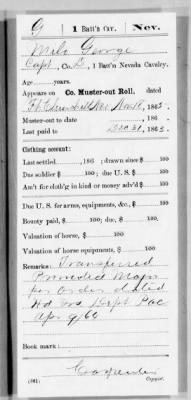 G 1 Batt'n Cav. Nev.
Milo George
Capt, Co. , 1 Batt'n Nevada Cavalry.
Age years.
Appears on Co. Muster-out Roll, dated
Ft Churchill Nev Nov 18, 1865.
Muster-out to date , 186 .
Last paid to Dec 31, 1863.
Clothing account:
Last settled , 186 ; drawn since $ 100
Due soldier $ 100; due U. S. $ 100
Am't for cloth'g in kind or money adv'd $ 100
Due U. S. for arms, equipments, &c., $ 100
Bounty paid, $ 100; due, $ 100
Valuation of horse, $ 100
Valuation of horse equipments, $ 100
Remarks: Transferred
Promoted Major
per Order dated
Hd Qrs Dept Pac
Apr 9/60
Book mark:
Carpenter
(361) Copyist.